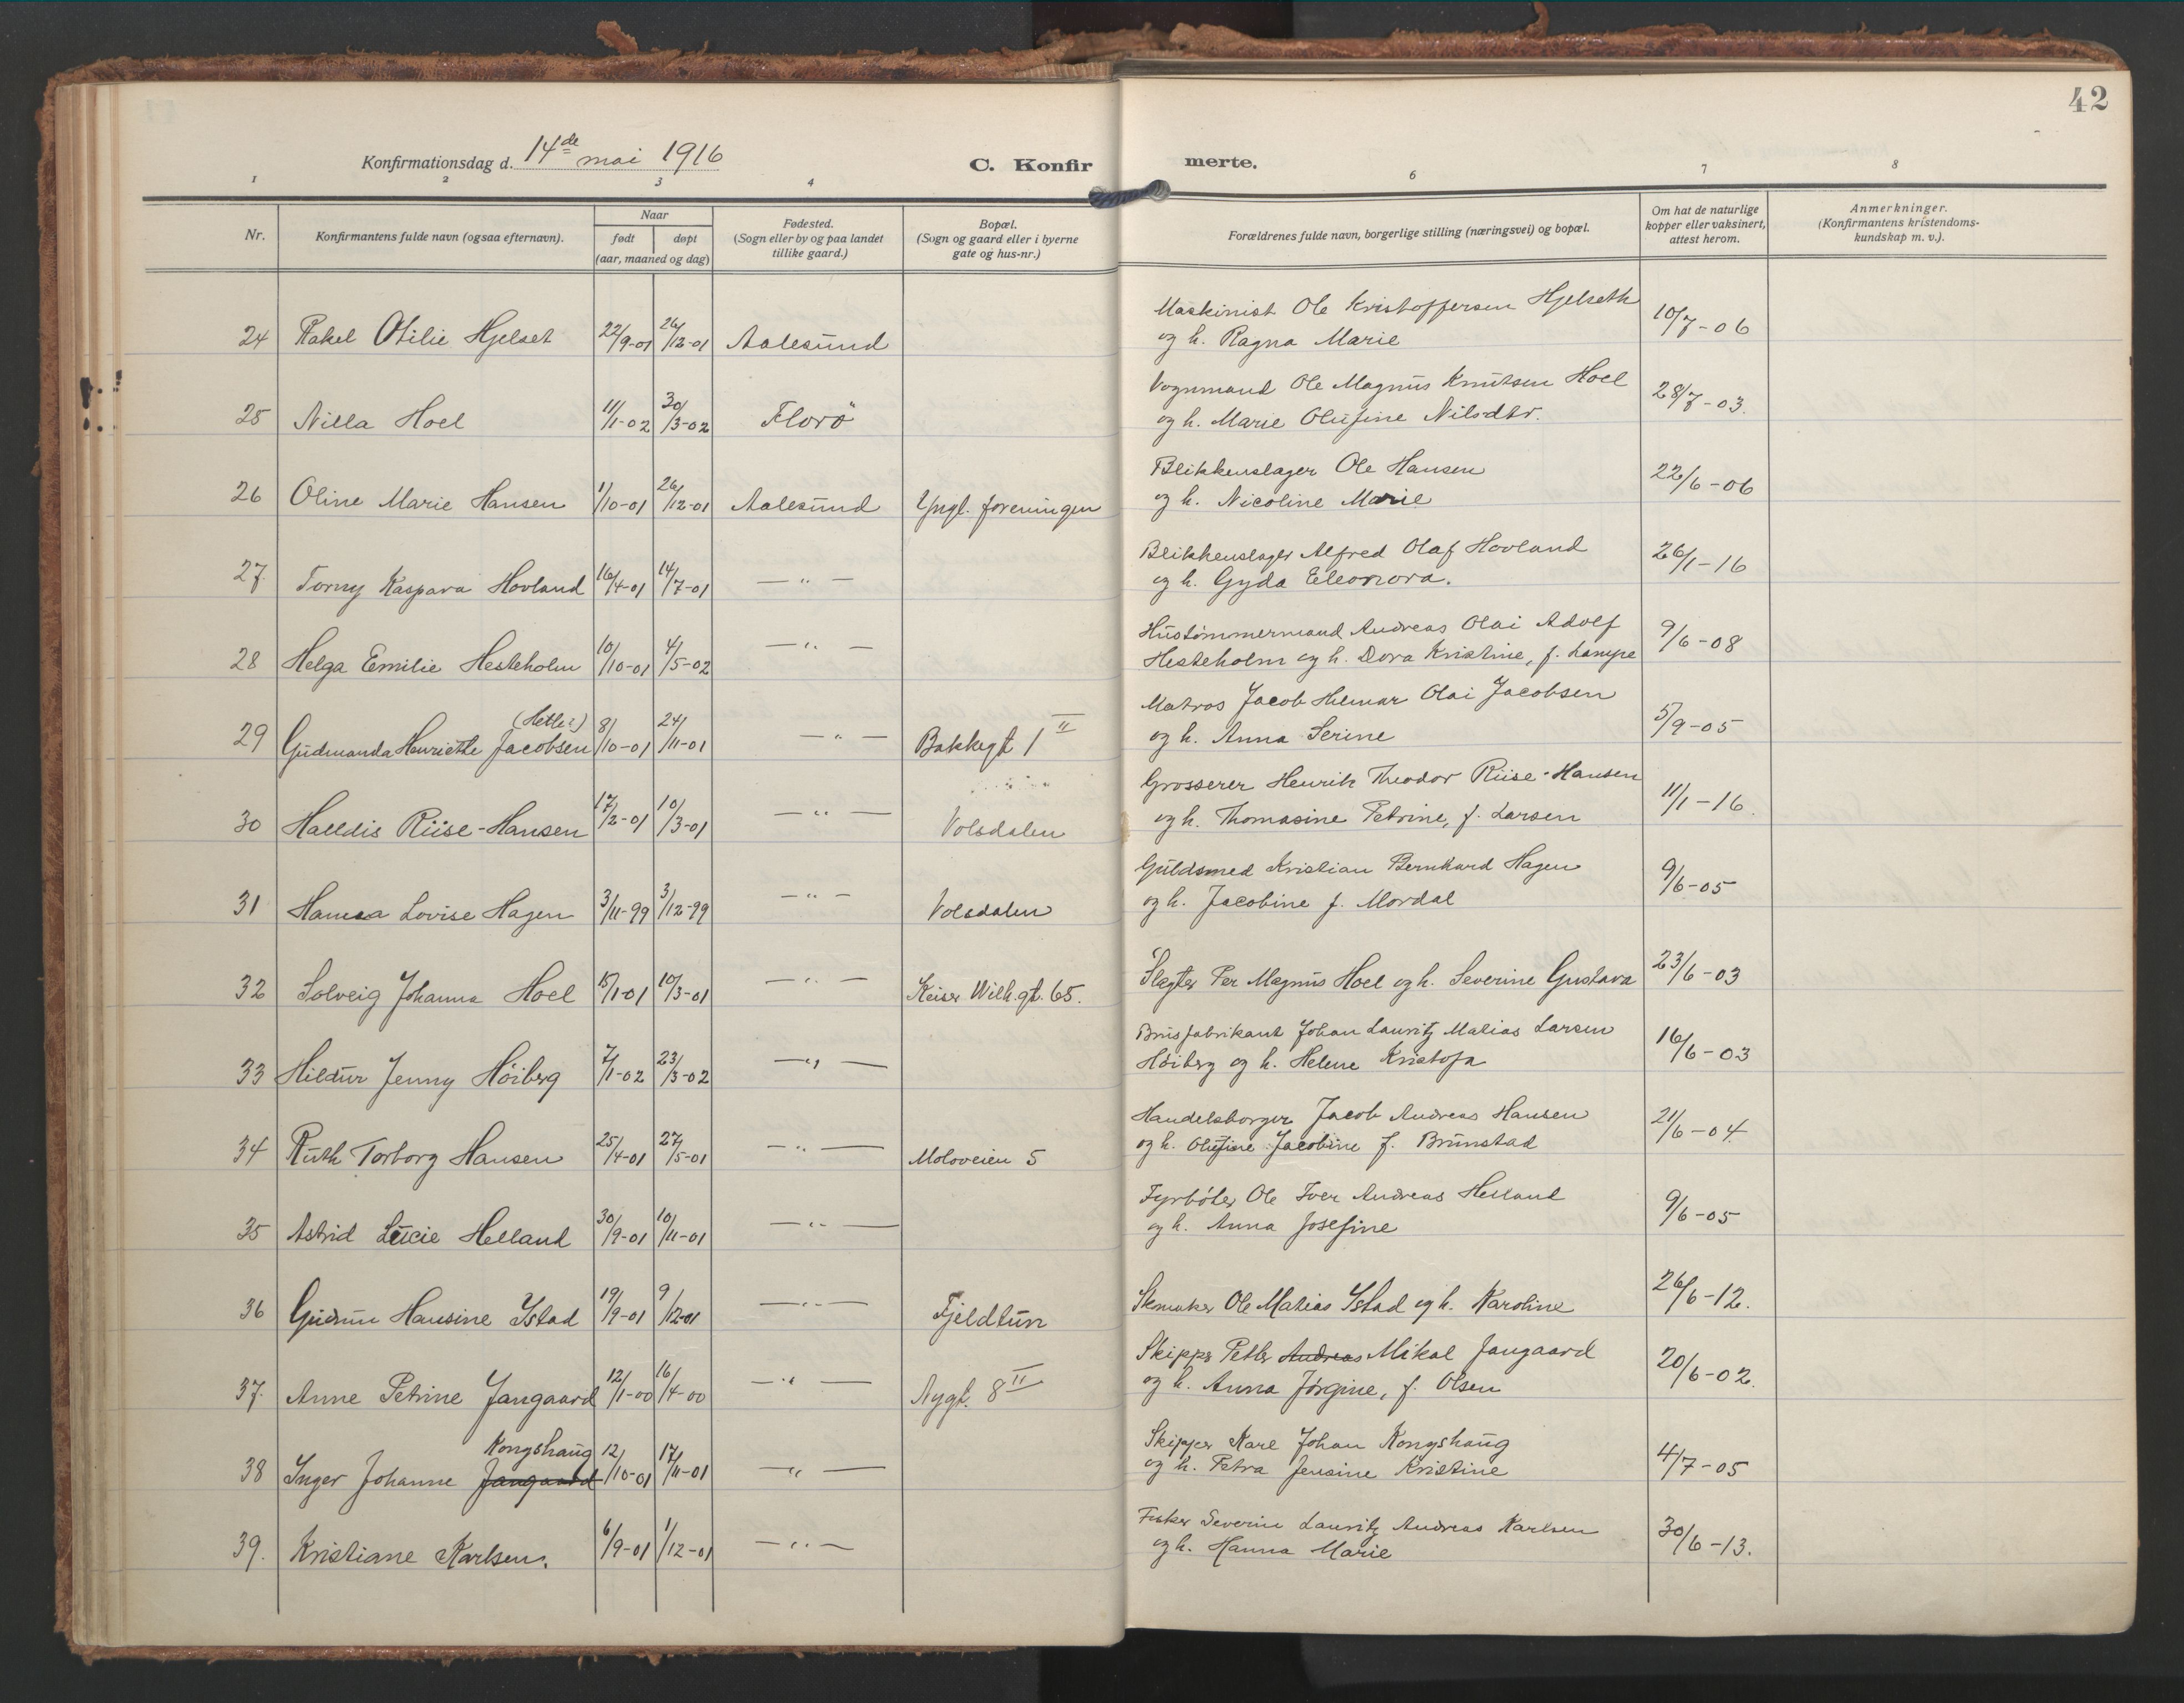 42
Konfirmationsdag d. 14de mai 1916
C. Konfir merte.
1 2 3 4 6 7 8
Nr.
Konfirmantens fulde navn (ogsaa efternavn).
Naar
født døpt
(aar, maaned og dag)
Fødested.
(Sogn eller by og paa landet
tillike gaard.)
Bopæl.
(Sogn og gaard eller i byerne
gate og hus-nr.)
Forældrenes fulde navn, borgerlige stilling (næringsvei) og bopæl.
Om hat de naturlige
kopper eller vaksinert,
attest herom.
Anmerkninger.
(Konfirmantens kristendoms-
kundskap m. v.).
Maskinist Ole Kristoffersen Hjelseth
24 Rakel Otilie Hjelset 22/9-01 26/12-01 Aalesund og h. Ragna Marie 10/7-06
Vognmand Ole Magnus Knutsen Hoel
25 Nilla Hoel 11/1-02 30/3-02 Florö og h. Marie Olufine Nilsdtr. 28/7-03.
Blikkenslager Ole Hansen
26 Oline Marie Hansen 1/10-01 26/12-01 Aalesund Yngl. foreningen og h. Nicoline Marie 22/6-06
Blikkenslager Alfred Olaf Hovland
27. Torny Kaspara Hovland 16/4-01 14/7-01 — " — og h. Gyda Eleonora. 26/1-16
Hustømmermand Andreas Olai Adolf
28 Helga Emilie Hesteholm 10/10-01 4/5-02 — " — Hesteholm og h. Dora Kristine, f. Lampe 9/6-08
(Hetle?)
Matros Jacob Hilmar Olai Jacobsen
29 Gudmanda Henriette Jacobsen 8/10-01 24/11-01 — " — Bakkegt 1 II og h. Anna Serine 5/9-05
Grosserer Henrik Theodor Riise-Hansen
30 Halldis Riise-Hansen 17/2-01 10/3-01 — " — Volsdalen og h. Thomasine Petrine, f. Larsen 11/1-16.
Guldsmed Kristian Bernhard Hagen
31 Hanna Lovise Hagen 3/11-99 3/12-99 — " — Volsdalen og h. Jacobine f. Mordal 9/6-05
32 Solveig Johanna Hoel 15/1-01 10/3-01 — " — Keiser Wilh.gt. 65. Slagter Per Magnus Hoel og h. Severine Gustava 23/6-03
Brusfabrikant Johan Lauritz Matias Larsen
33 Hildur Jenny Höiberg 7/1-02 23/3-02 — " — Höiberg og h. Helene Kristofa 16/6-03
Handelsborger Jacob Andreas Hansen
34 Ruth Torborg Hansen 25/4-01 27/5-01 — " — Moloveien 5 og h. Olufine Jacobine f. Brunstad 21/6-04
Fyrböter Ole Iver Andreas Helland
35 Astrid Lucie Helland 30/9-01 10/11-01 — " — og h. Anna Josefine 9/6-05
36 Gudrun Hansine Ystad 19/9-01 9/12-01 — " — Fjeldtun Skomaker Ole Matias Ystad og h. Karoline 26/6-12.
Skipper Petter Andreas Mikal Jangaard
37. Anne Petrine Jangaard 12/1-00 16/4-00 — " — Nygt. 8 II og h. Anna Jørgine, f. Olsen 20/6-02.
Kongshaug
Skipper Karl Johan Kongshaug
38 Inger Johanne Jangaard 12/10-01 17/11-01 — " — og h. Petra Jensine Kristine 4/7-05
Fisker Severin Lauritz Andreas Karlsen
39. Kristiane Karlsen. 6/9-01 1/12-01 — " — og h. Hanna Marie 30/6-13.